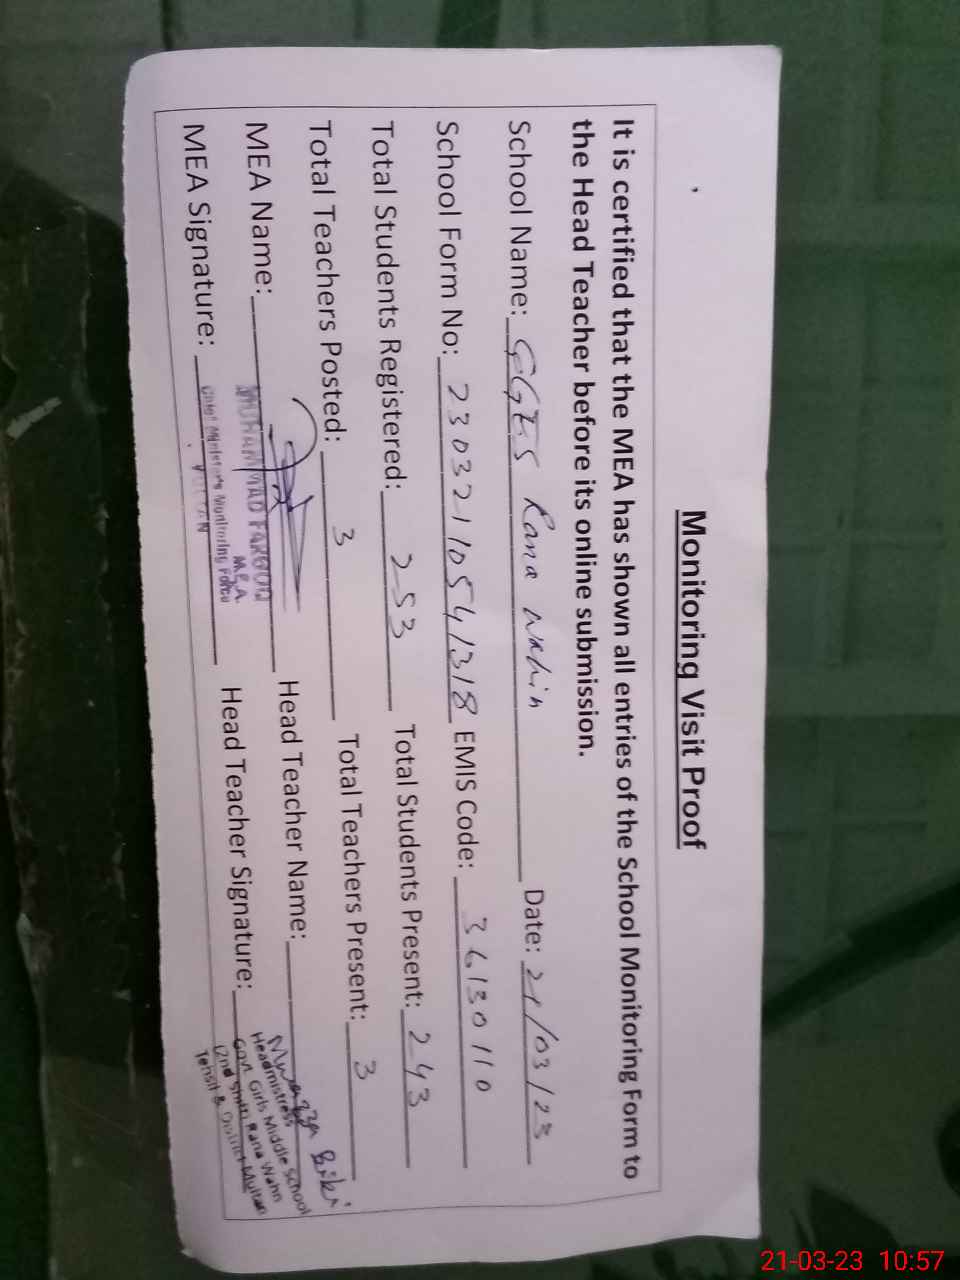 Monitoring Visit Proof
It is certified that the MEA has shown all entries of the School Monitoring Form to
the Head Teacher before its online submission.
School Name: GGES Rana Wahin Date: 21/03/23
School Form No: 230321105541318 EMIS Code: 36130110
Total Students Registered: 253 Total Students Present: 243
Total Teachers Posted: 3 Total Teachers Present: 3
MEA Name: MUHAMMAD FAROOQ Head Teacher Name:
M.E.A
MEA Signature: Chief Minister's Monitoring Force Head Teacher Signature:
Bibi
Headmistress
Govt. Girls Middle School
(2nd Shift) Rana Wahn
Tehsil & District Multan
21-03-23 10:57